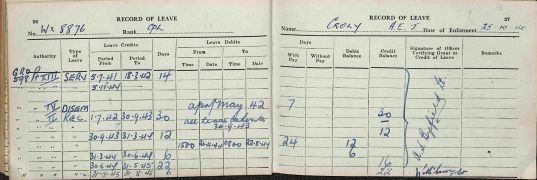 26
RECORD OF LEAVE
No. Wx 8876 Rank Cpl.
Authority
Type of Leave
Leave Credits
Period From
Period To
Days
Leave Debits
From
To
Time
Date
Time
Date
GRO P
598 Pt XIII SERV 5-7-41 18-3-42 14
5-11-41
" IV DISEM april May 42
" IV REC. 1-7-42 30-9-43 30 all leave taken to
30-9-43
" " " 30-9-43 31-3-44 12
1500 0900
" " " 31-3-44 30-6-44 6
" " " 30-6-44 31-5-45 22
" " " 31-5-45 31-8-45 6
RECORD OF LEAVE
27
Name CROLY A.E.J Date of Enlistment 25-10-40
Days
With Pay
Without Pay
Debit Balance
Credit Balance
Signature of Officer Verifying Grant or Credit of Leave
Remarks
7
30
12
24 12
6
16
22